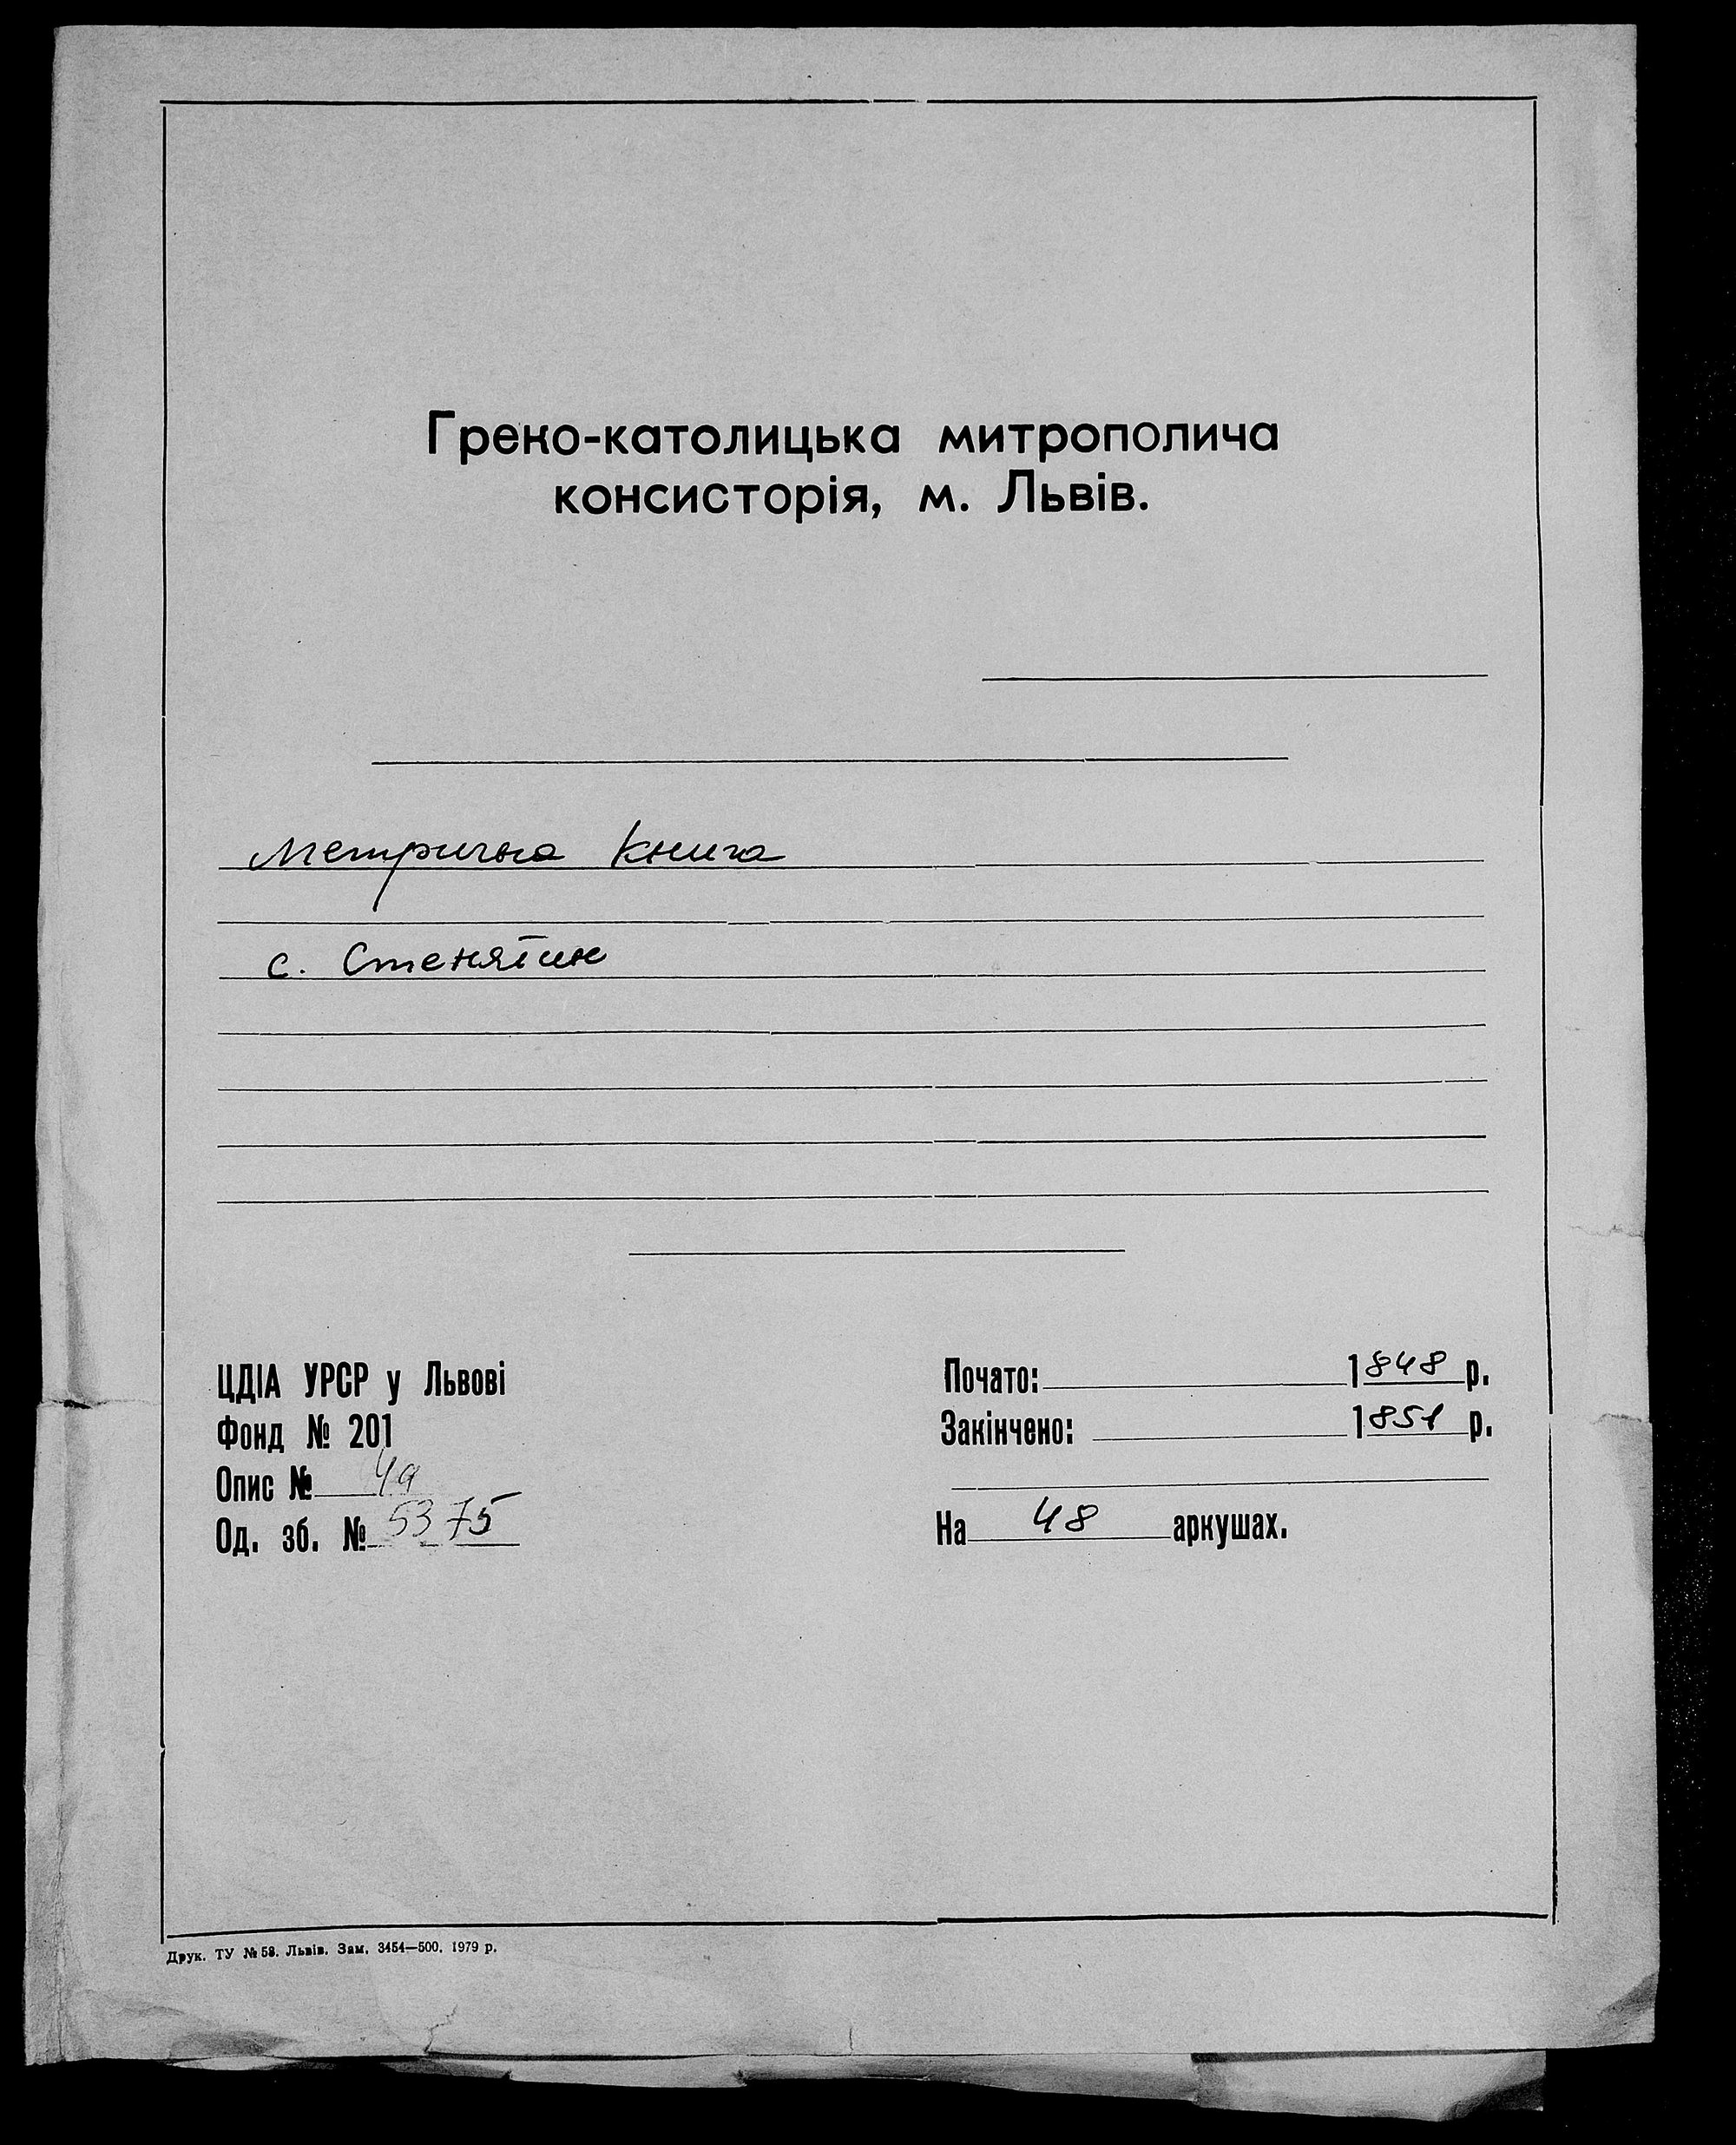 Греко-католицька митрополича
консисторія, м. Львів.
Метрична книга
с. Стенятин
ЦДІА УРСР у Львові
Фонд № 201
Опис № 4а
Од. зб. № 5375
Почато: 1848 р.
Закінчено: 1851 р.
На 48 аркушах.
Друк. ТУ № 58. Львів. Зам. 3454—500. 1979 р.